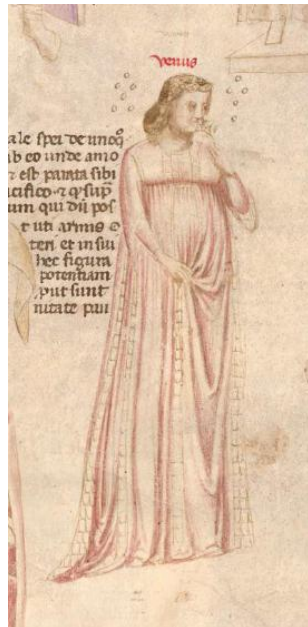 venus
ale spei de unoq̄
ab eo unde amo
⁊ est parata sibi
cifico ⁊ q̄ sup̄
um qui dii pos
t uti armis ⁊
teri et in sui
hec figura
potentiam
put sunt
nitate pui